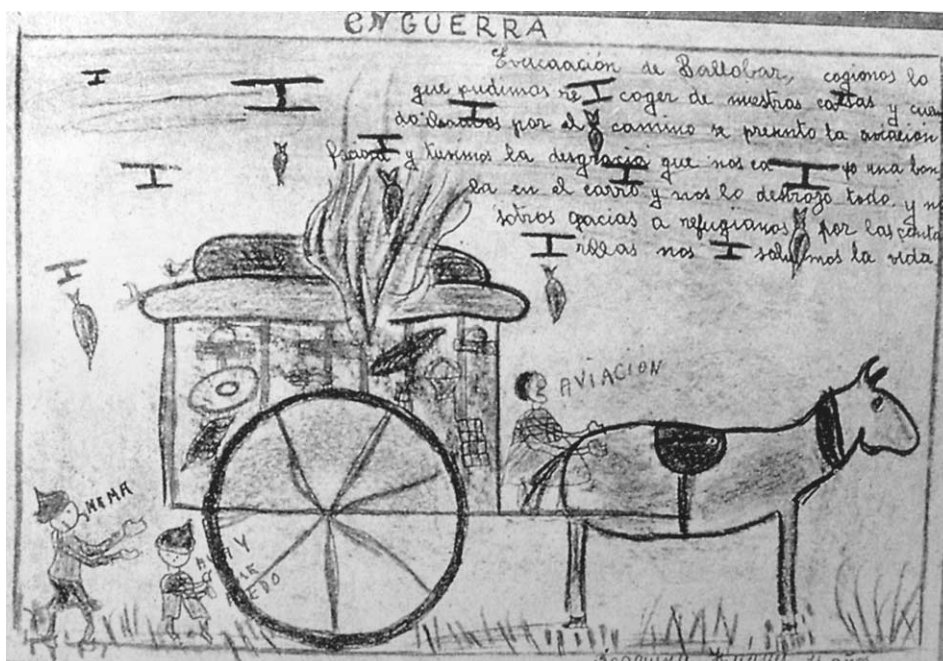 EN GUERRA
Evicuación de Ballobar, cogionos lo
que pudimos re coger de nuestras casas y cuan
do ibamos por el camino se presento la aviacion
faciosa y tuvimos la desgracia que nos ca yo una bon
ba en el carro y nos lo destrojo todo y no
sotros gacias a refugianos por las cunta
rillas nos salvemos la vida
AVIACIÓN
MEMA
AY
MIEDO